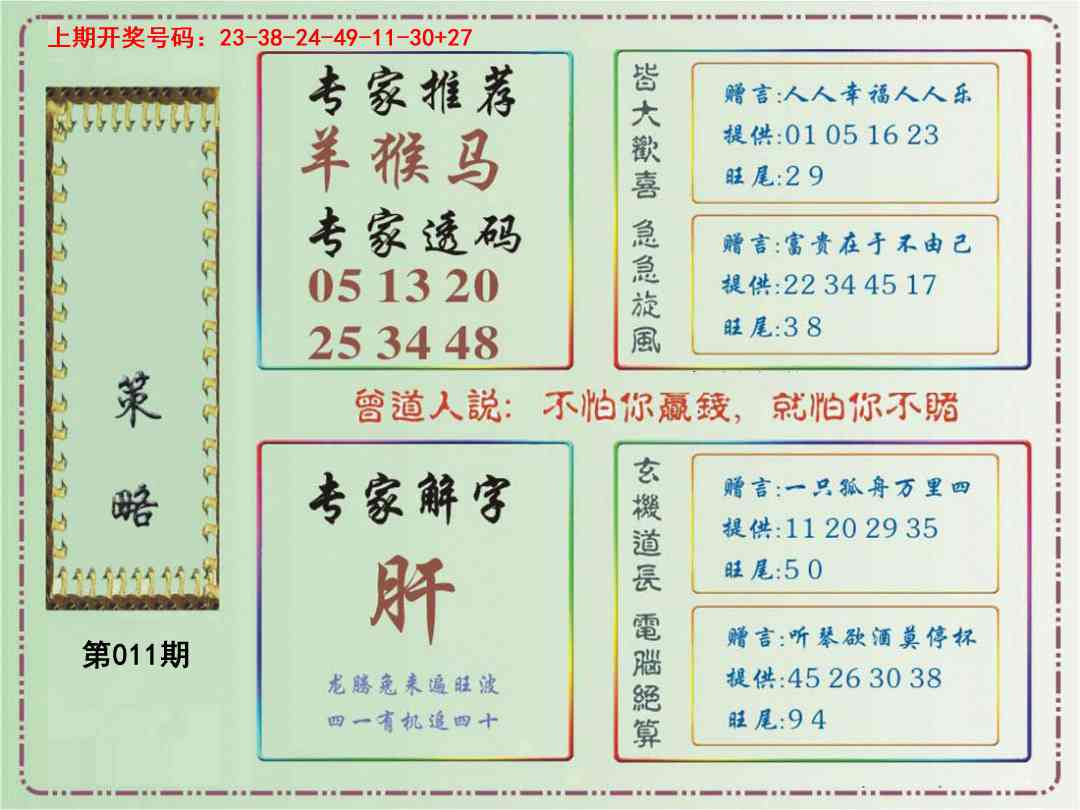 上期开奖号码：23-38-24-49-11-30+27
策略
第011期
专家推荐
羊猴马
专家透码
05 13 20
25 34 48
皆大歡喜
赠言:人人幸福人人乐
提供:01 05 16 23
旺尾:2 9
急急旋風
赠言:富贵在于不由己
提供:22 34 45 17
旺尾:3 8
曾道人説：不怕你贏錢，就怕你不賭
专家解字
肝
龙腾兔来遍旺波
四一有机追四十
玄機道長
赠言:一只孤舟万里四
提供:11 20 29 35
旺尾:5 0
電腦絕算
赠言:听琴欲酒莫停杯
提供:45 26 30 38
旺尾:9 4